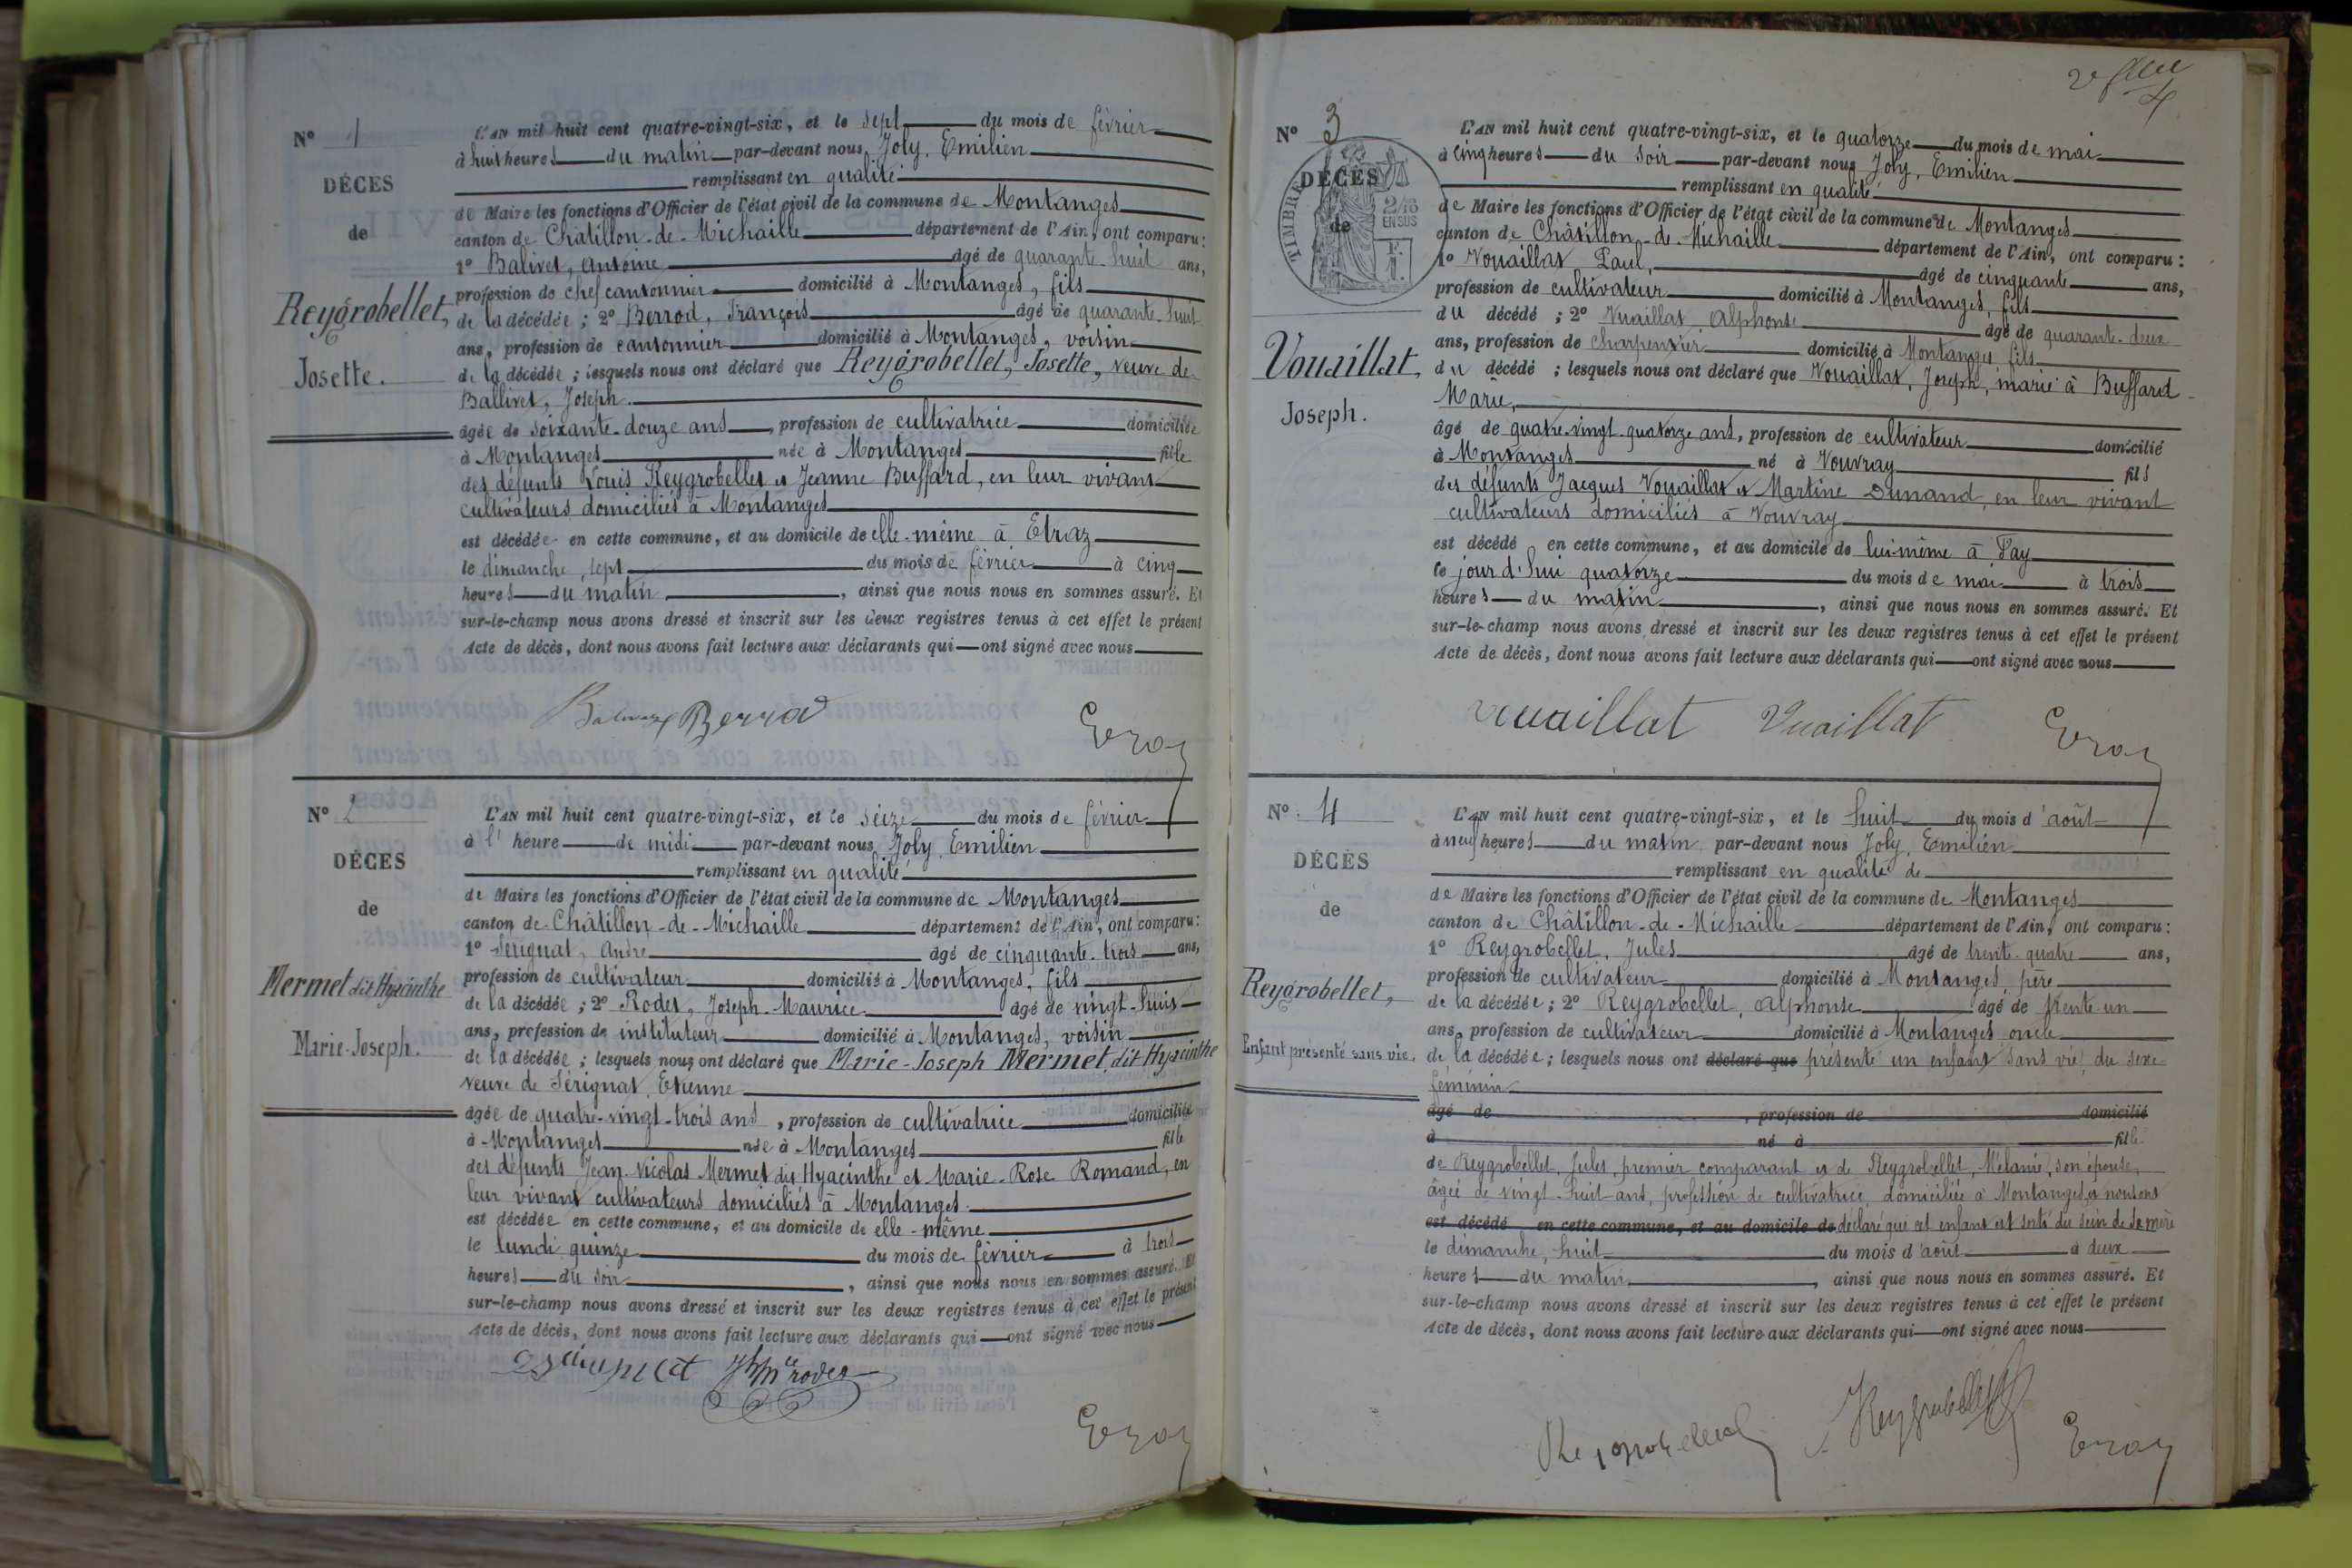 N° 1
DÉCES
de
Reygrobellet,
Josette.
L'AN mil huit cent quatre-vingt-six, et le sept du mois de février
à huit heures du matin par-devant nous Joly, Emilien
remplissant en qualité
de Maire les fonctions d'Officier de l'état civil de la commune de Montanges
canton de Chatillon-de-Michaille département de l'Ain, ont comparu:
1° Balivet, Antoine âgé de quarante-huit ans,
profession de chef cantonnier domicilié à Montanges, fils
de la décédée; 2° Berrod, François âgé de quarante-huit
ans, profession de cantonnier domicilié à Montanges, voisin
de la décédée; lesquels nous ont déclaré que Reygrobellet, Josette, veuve de
Ballivet, Joseph.
âgée de soixante-douze ans, profession de cultivatrice domiciliée
à Montanges née à Montanges fille
des défunts Louis Reygrobellet et Jeanne Buffard, en leur vivant
cultivateurs domiciliés à Montanges
est décédée en cette commune, et au domicile de elle-même à Etraz
le dimanche, sept du mois de février à cinq
heures du matin, ainsi que nous nous en sommes assuré. Et
sur-le-champ nous avons dressé et inscrit sur les deux registres tenus à cet effet le présent
Acte de décès, dont nous avons fait lecture aux déclarants qui ont signé avec nous
Berrod
N° 2
DÉCES
de
Mermet dit Hyacinthe
Marie-Joseph.
L'AN mil huit cent quatre-vingt-six, et le seize du mois de février
à l'heure de midi par-devant nous Joly, Emilien
remplissant en qualité
de Maire les fonctions d'Officier de l'état civil de la commune de Montanges
canton de Châtillon-de-Michaille département de l'Ain, ont comparu:
1° Serignat, André âgé de cinquante-trois ans,
profession de cultivateur domicilié à Montanges, fils
de la décédée; 2° Rodet, Joseph-Maurice âgé de vingt-huit
ans, profession de instituteur domicilié à Montanges, voisin
de la décédée; lesquels nous ont déclaré que Marie-Joseph Mermet dit Hyacinthe
veuve de Sérignat, Etienne
âgée de quatre-vingt-trois ans, profession de cultivatrice domiciliée
à Montanges née à Montanges fille
des défunts Jean-Nicolas Mermet dit Hyacinthe et Marie-Rose Romand, en
leur vivant cultivateurs domiciliés à Montanges.
est décédée en cette commune, et au domicile de elle-même
le lundi quinze du mois de février à trois
heures du soir, ainsi que nous nous en sommes assuré. Et
sur-le-champ nous avons dressé et inscrit sur les deux registres tenus à cet effet le présent
Acte de décès, dont nous avons fait lecture aux déclarants qui ont signé avec nous
N° 3
DÉCÈS
de
TIMBRE
2/10
EN SUS
Vouaillat,
Joseph.
L'AN mil huit cent quatre-vingt-six, et le quatorze du mois de mai
à cinq heures du soir par-devant nous Joly, Emilien
remplissant en qualité
de Maire les fonctions d'Officier de l'état civil de la commune de Montanges
canton de Châtillon-de-Michaille département de l'Ain, ont comparu:
1° Vouaillat Paul, âgé de cinquante ans,
profession de cultivateur domicilié à Montanges, fils
du décédé; 2° Vuaillat Alphonse âgé de quarante-deux
ans, profession de charpentier domicilié à Montanges fils
du décédé; lesquels nous ont déclaré que Vouaillat, Joseph, marié à Buffard
Marie,
âgé de quatre-vingt-quatorze ans, profession de cultivateur domicilié
à Montanges né à Vouvray fils
des défunts Jacques Vouaillat et Martine Dunand, en leur vivant
cultivateurs domiciliés à Vouvray
est décédé en cette commune, et au domicile de lui-même à Pay
le jour d'hui quatorze du mois de mai à trois
heures du matin, ainsi que nous nous en sommes assuré. Et
sur-le-champ nous avons dressé et inscrit sur les deux registres tenus à cet effet le présent
Acte de décès, dont nous avons fait lecture aux déclarants qui ont signé avec nous
Vuaillat Vuaillat
N° 4
DÉCÈS
de
Reygrobellet,
Enfant présenté sans vie.
L'AN mil huit cent quatre-vingt-six, et le huit du mois d'août
à neuf heures du matin par-devant nous Joly, Emilien
remplissant en qualité de
de Maire les fonctions d'Officier de l'état civil de la commune de Montanges
canton de Châtillon-de-Michaille département de l'Ain, ont comparu:
1° Reygrobellet, Jules âgé de trente-quatre ans,
profession de cultivateur domicilié à Montanges, père
de la décédée; 2° Reygrobellet, Alphonse âgé de trente-un
ans, profession de cultivateur domicilié à Montanges oncle
de la décédée; lesquels nous ont déclaré que présenté un enfant sans vie, du sexe
féminin
âgé de , profession de domicilié
à né à fille
de Reygrobellet, Jules premier comparant et de Reygrobellet, Mélanie, son épouse,
âgée de vingt-huit ans, profession de cultivatrice domiciliée à Montanges, et nous ont
est décédé en cette commune, et au domicile de déclaré que cet enfant est sorti du sein de sa mère
le dimanche, huit du mois d'août à deux
heures du matin, ainsi que nous nous en sommes assuré. Et
sur-le-champ nous avons dressé et inscrit sur les deux registres tenus à cet effet le présent
Acte de décès, dont nous avons fait lecture aux déclarants qui ont signé avec nous
Reygrobellet